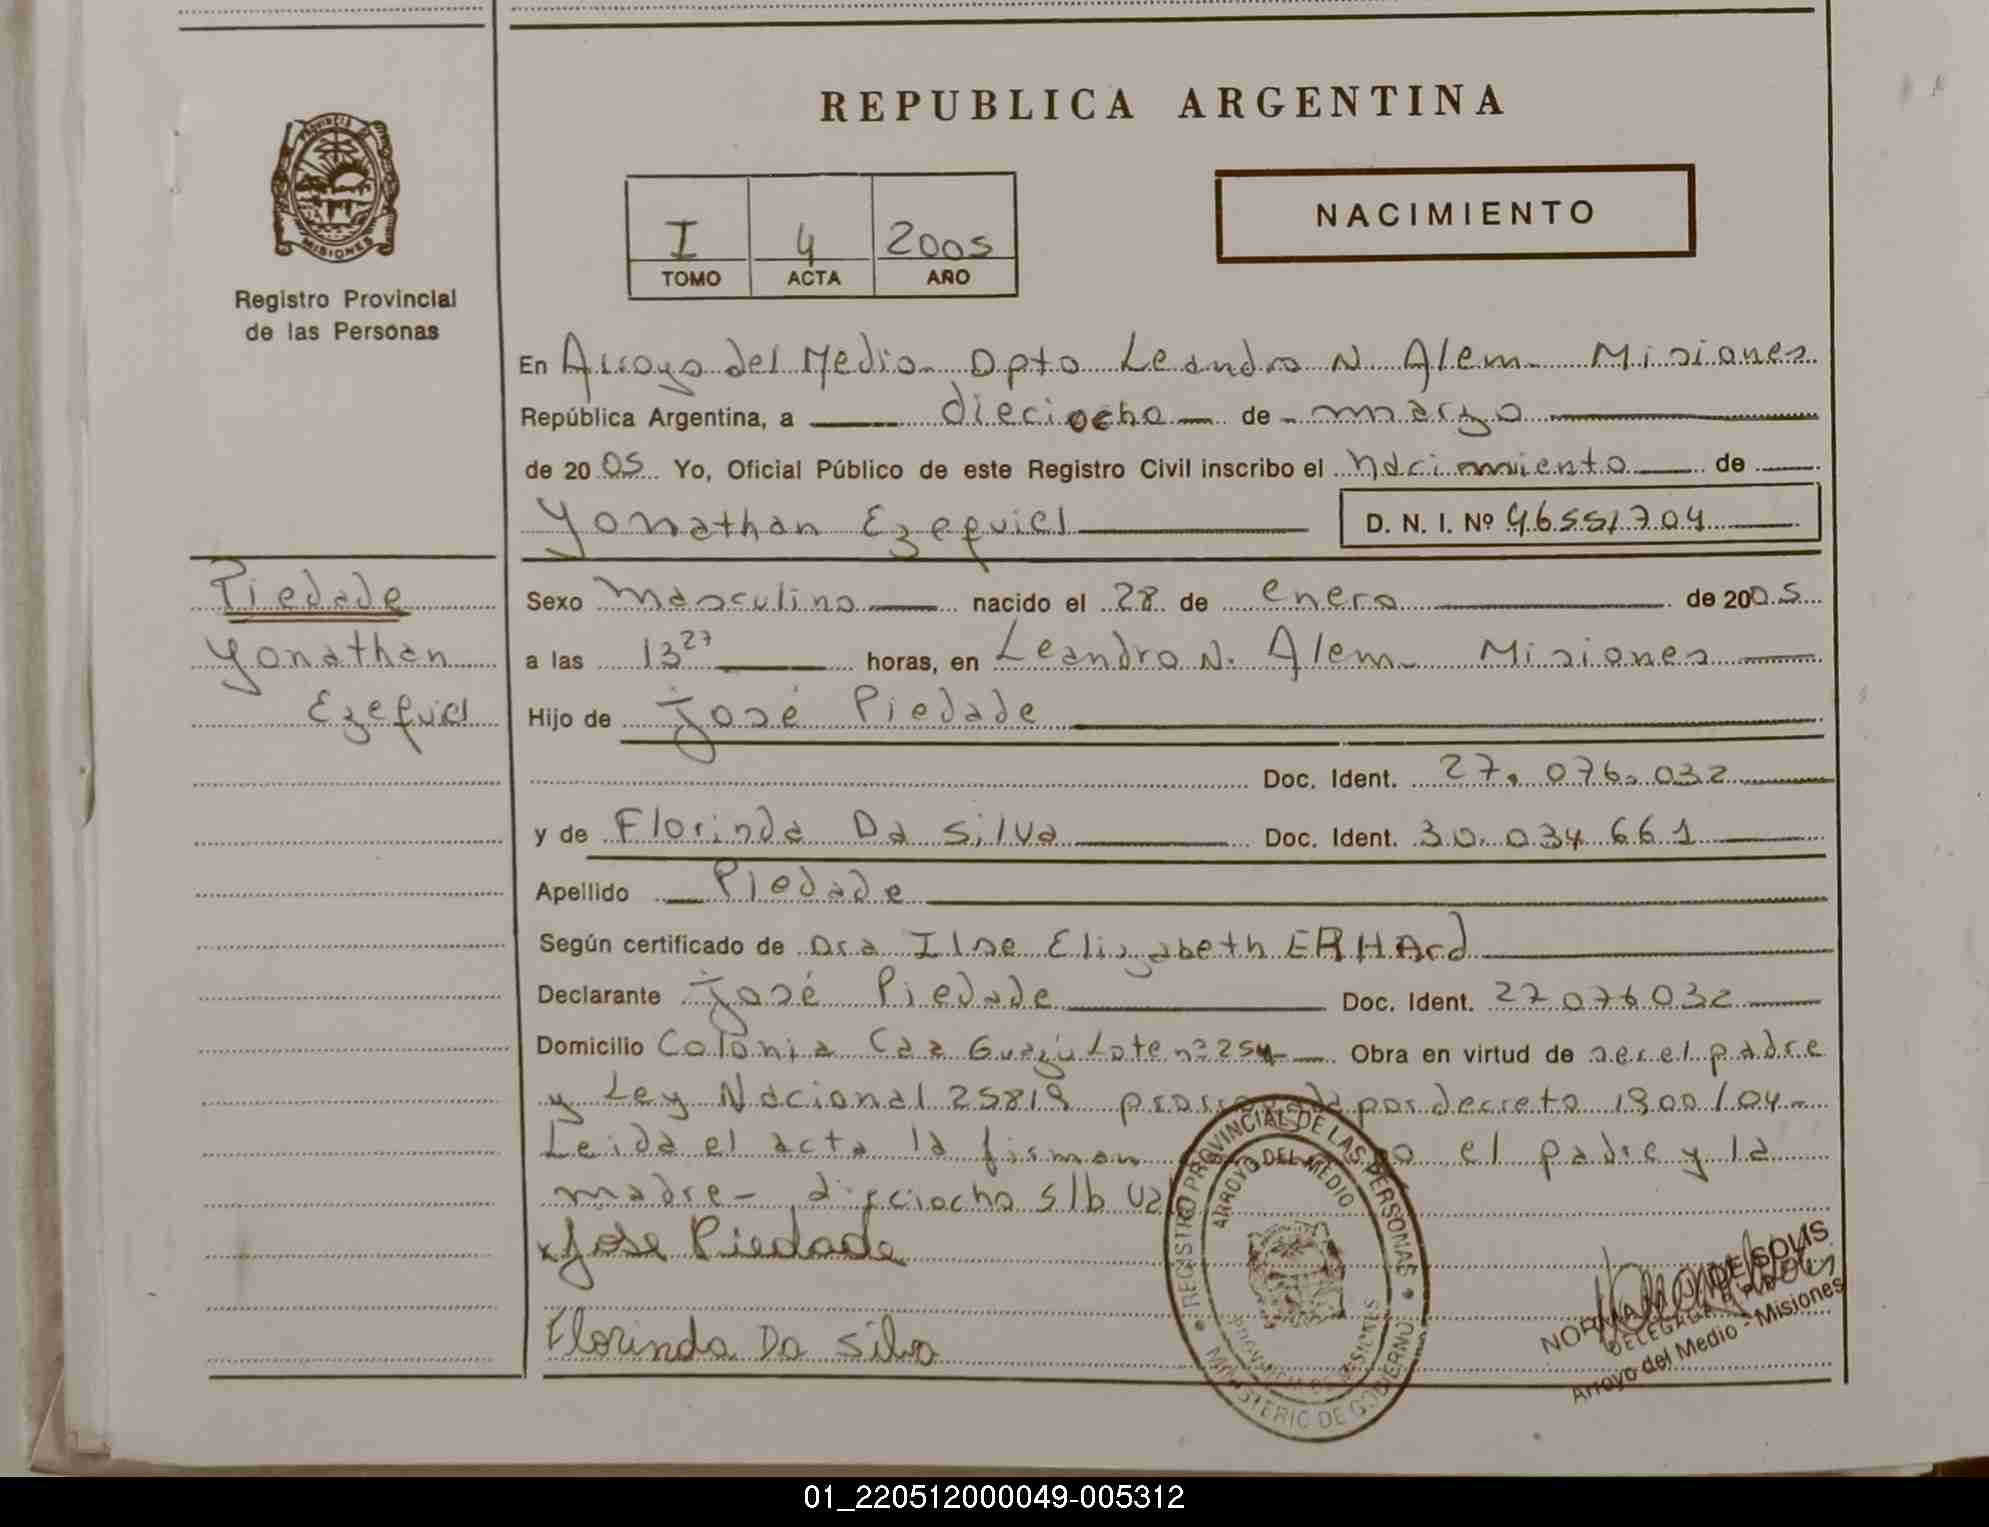 REPUBLICA ARGENTINA
PROVINCIA DE
MISIONES
Registro Provincial
de las Personas
NACIMIENTO
I 4 2005
TOMO ACTA AÑO
En Arroyo del Medio - Dpto Leandro N. Alem - Misiones
República Argentina, a dieciocho de marzo
de 2005 Yo, Oficial Público de este Registro Civil inscribo el nacimiento de
Yonathan Ezequiel D. N. I. Nº 46551704
Piedade
Yonathan
Ezequiel
Sexo Masculino nacido el 28 de enero de 2005
a las 13 27 horas, en Leandro N. Alem - Misiones
Hijo de José Piedade
Doc. Ident. 27.076.032
y de Florinda Da Silva Doc. Ident. 30.034.661
Apellido Piedade
Según certificado de Dra Ilse Elizabeth ERHArd
Declarante José Piedade Doc. Ident. 27076032
Domicilio Colonia Caa Guazú Lote nº 254 Obra en virtud de ser el padre
y Ley Nacional 25819 prorrogada por decreto 1900/04 -
Leida el acta la firman el padre y la
madre - dieciocho s/b Val
Jose Piedade
Florinda Da Silva
REGISTRO PROVINCIAL DE LAS PERSONAS
ARROYO DEL MEDIO
PROVINCIA DE MISIONES
MINISTERIO DE GOBIERNO
NORMA DE SOLIS
DELEGADA
Arroyo del Medio - Misiones
01_220512000049-005312